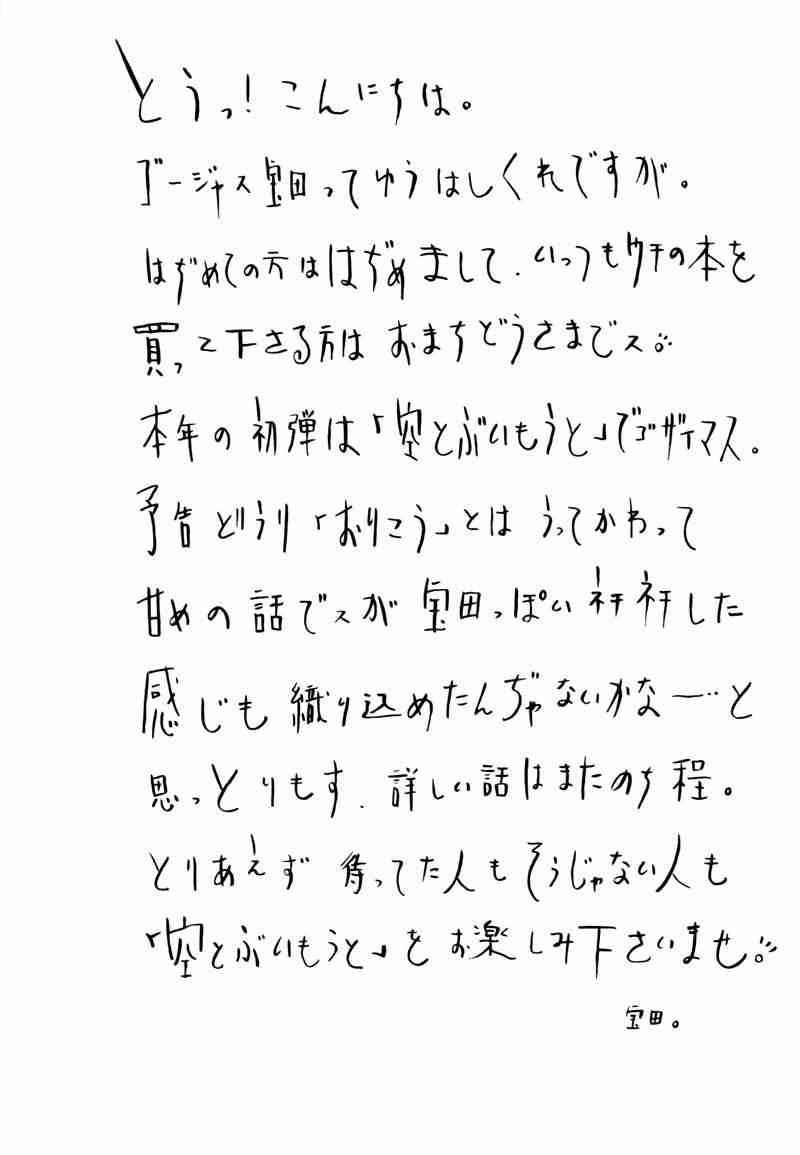 とうっ！こんにちは。
ゴージャス宝田ってゆうはしくれですが。
はぢめての方ははぢめまして、いっつもウチの本を
買って下さる方はおまちどうさまでス。
本年の初弾は「空とぶいもうと」でゴザイマス。
予告どうり「おりこう」とはうってかわって
甘めの話でスが宝田っぽいネチネチした
感じも織り込めたんぢゃないかな―…と
思っとりもす、詳しい話はまたのち程。
とりあえず待ってた人もそうじゃない人も
「空とぶいもうと」をお楽しみ下さいませ。
宝田。